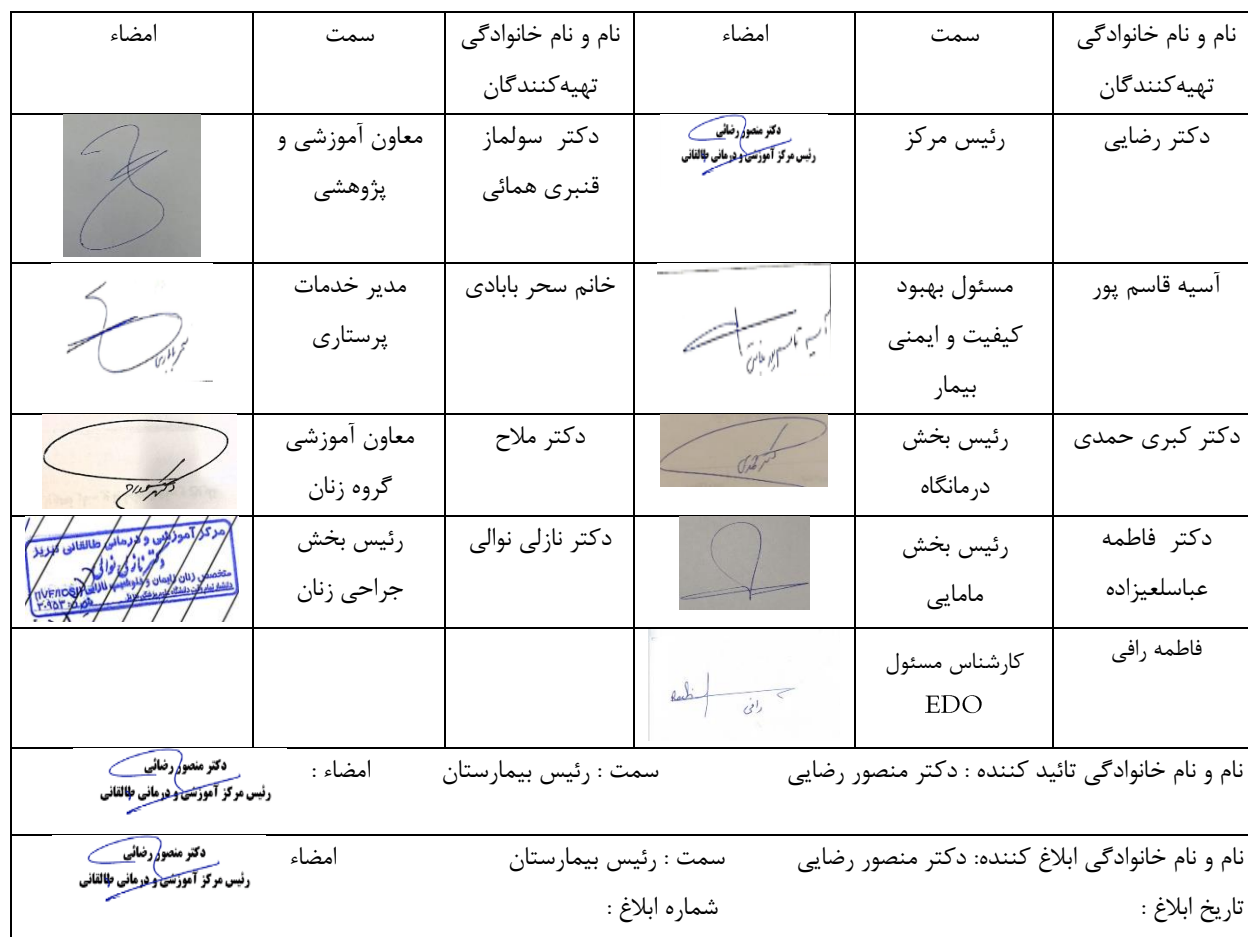 نام و نام خانوادگی
تهیه‌کنندگان
سمت
امضاء
نام و نام خانوادگی
تهیه‌کنندگان
سمت
امضاء
دکتر رضایی
رئیس مرکز
دکتر منصور رضائی
رئیس مرکز آموزشی و درمانی طالقانی
دکتر سولماز
قنبری همائی
معاون آموزشی و
پژوهشی
آسیه قاسم پور
مسئول بهبود
کیفیت و ایمنی
بیمار
آسیه قاسم پور
خانم سحر بابادی
مدیر خدمات
پرستاری
دکتر کبری حمدی
رئیس بخش
درمانگاه
دکتر حمدی
دکتر ملاح
معاون آموزشی
گروه زنان
دکتر فاطمه
عباسلعیزاده
رئیس بخش
مامایی
دکتر نازلی نوالی
رئیس بخش
جراحی زنان
مرکز آموزشی و درمانی طالقانی تبریز
دکتر نازلی نوالی
متخصص زنان زایمان و
فاطمه رافی
کارشناس مسئول
EDO
رافی
نام و نام خانوادگی تائید کننده : دکتر منصور رضایی سمت : رئیس بیمارستان امضاء :
دکتر منصور رضائی
رئیس مرکز آموزشی و درمانی طالقانی
نام و نام خانوادگی ابلاغ کننده: دکتر منصور رضایی سمت : رئیس بیمارستان امضاء
دکتر منصور رضائی
رئیس مرکز آموزشی و درمانی طالقانی
تاریخ ابلاغ : شماره ابلاغ :